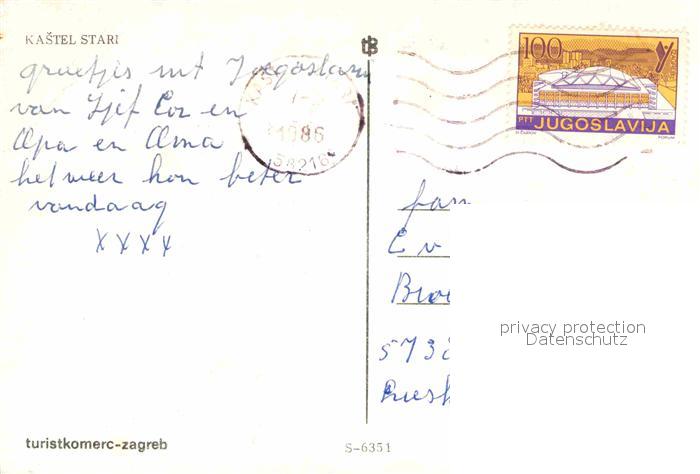 KAŠTEL STARI
groetjes uit Joegoslavi
van Sjef Cor en
Opa en Oma
het weer kon beter
vandaag
XXXX
1986
58216
100
PTT JUGOSLAVIJA
fam
C v
Bro
573
privacy protection
Datenschutz
turistkomerc-zagreb
S-6351